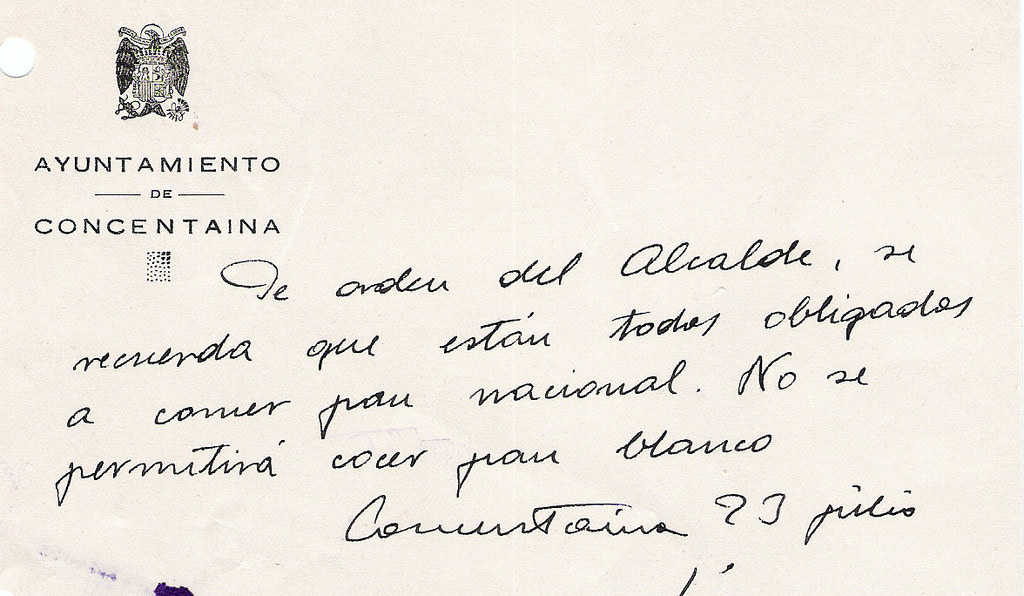 AYUNTAMIENTO
DE
CONCENTAINA
De orden del Alcalde, se
recuerda que están todos obligados
a comer pan nacional. No se
permitirá cocer pan blanco
Concentaina 23 julio